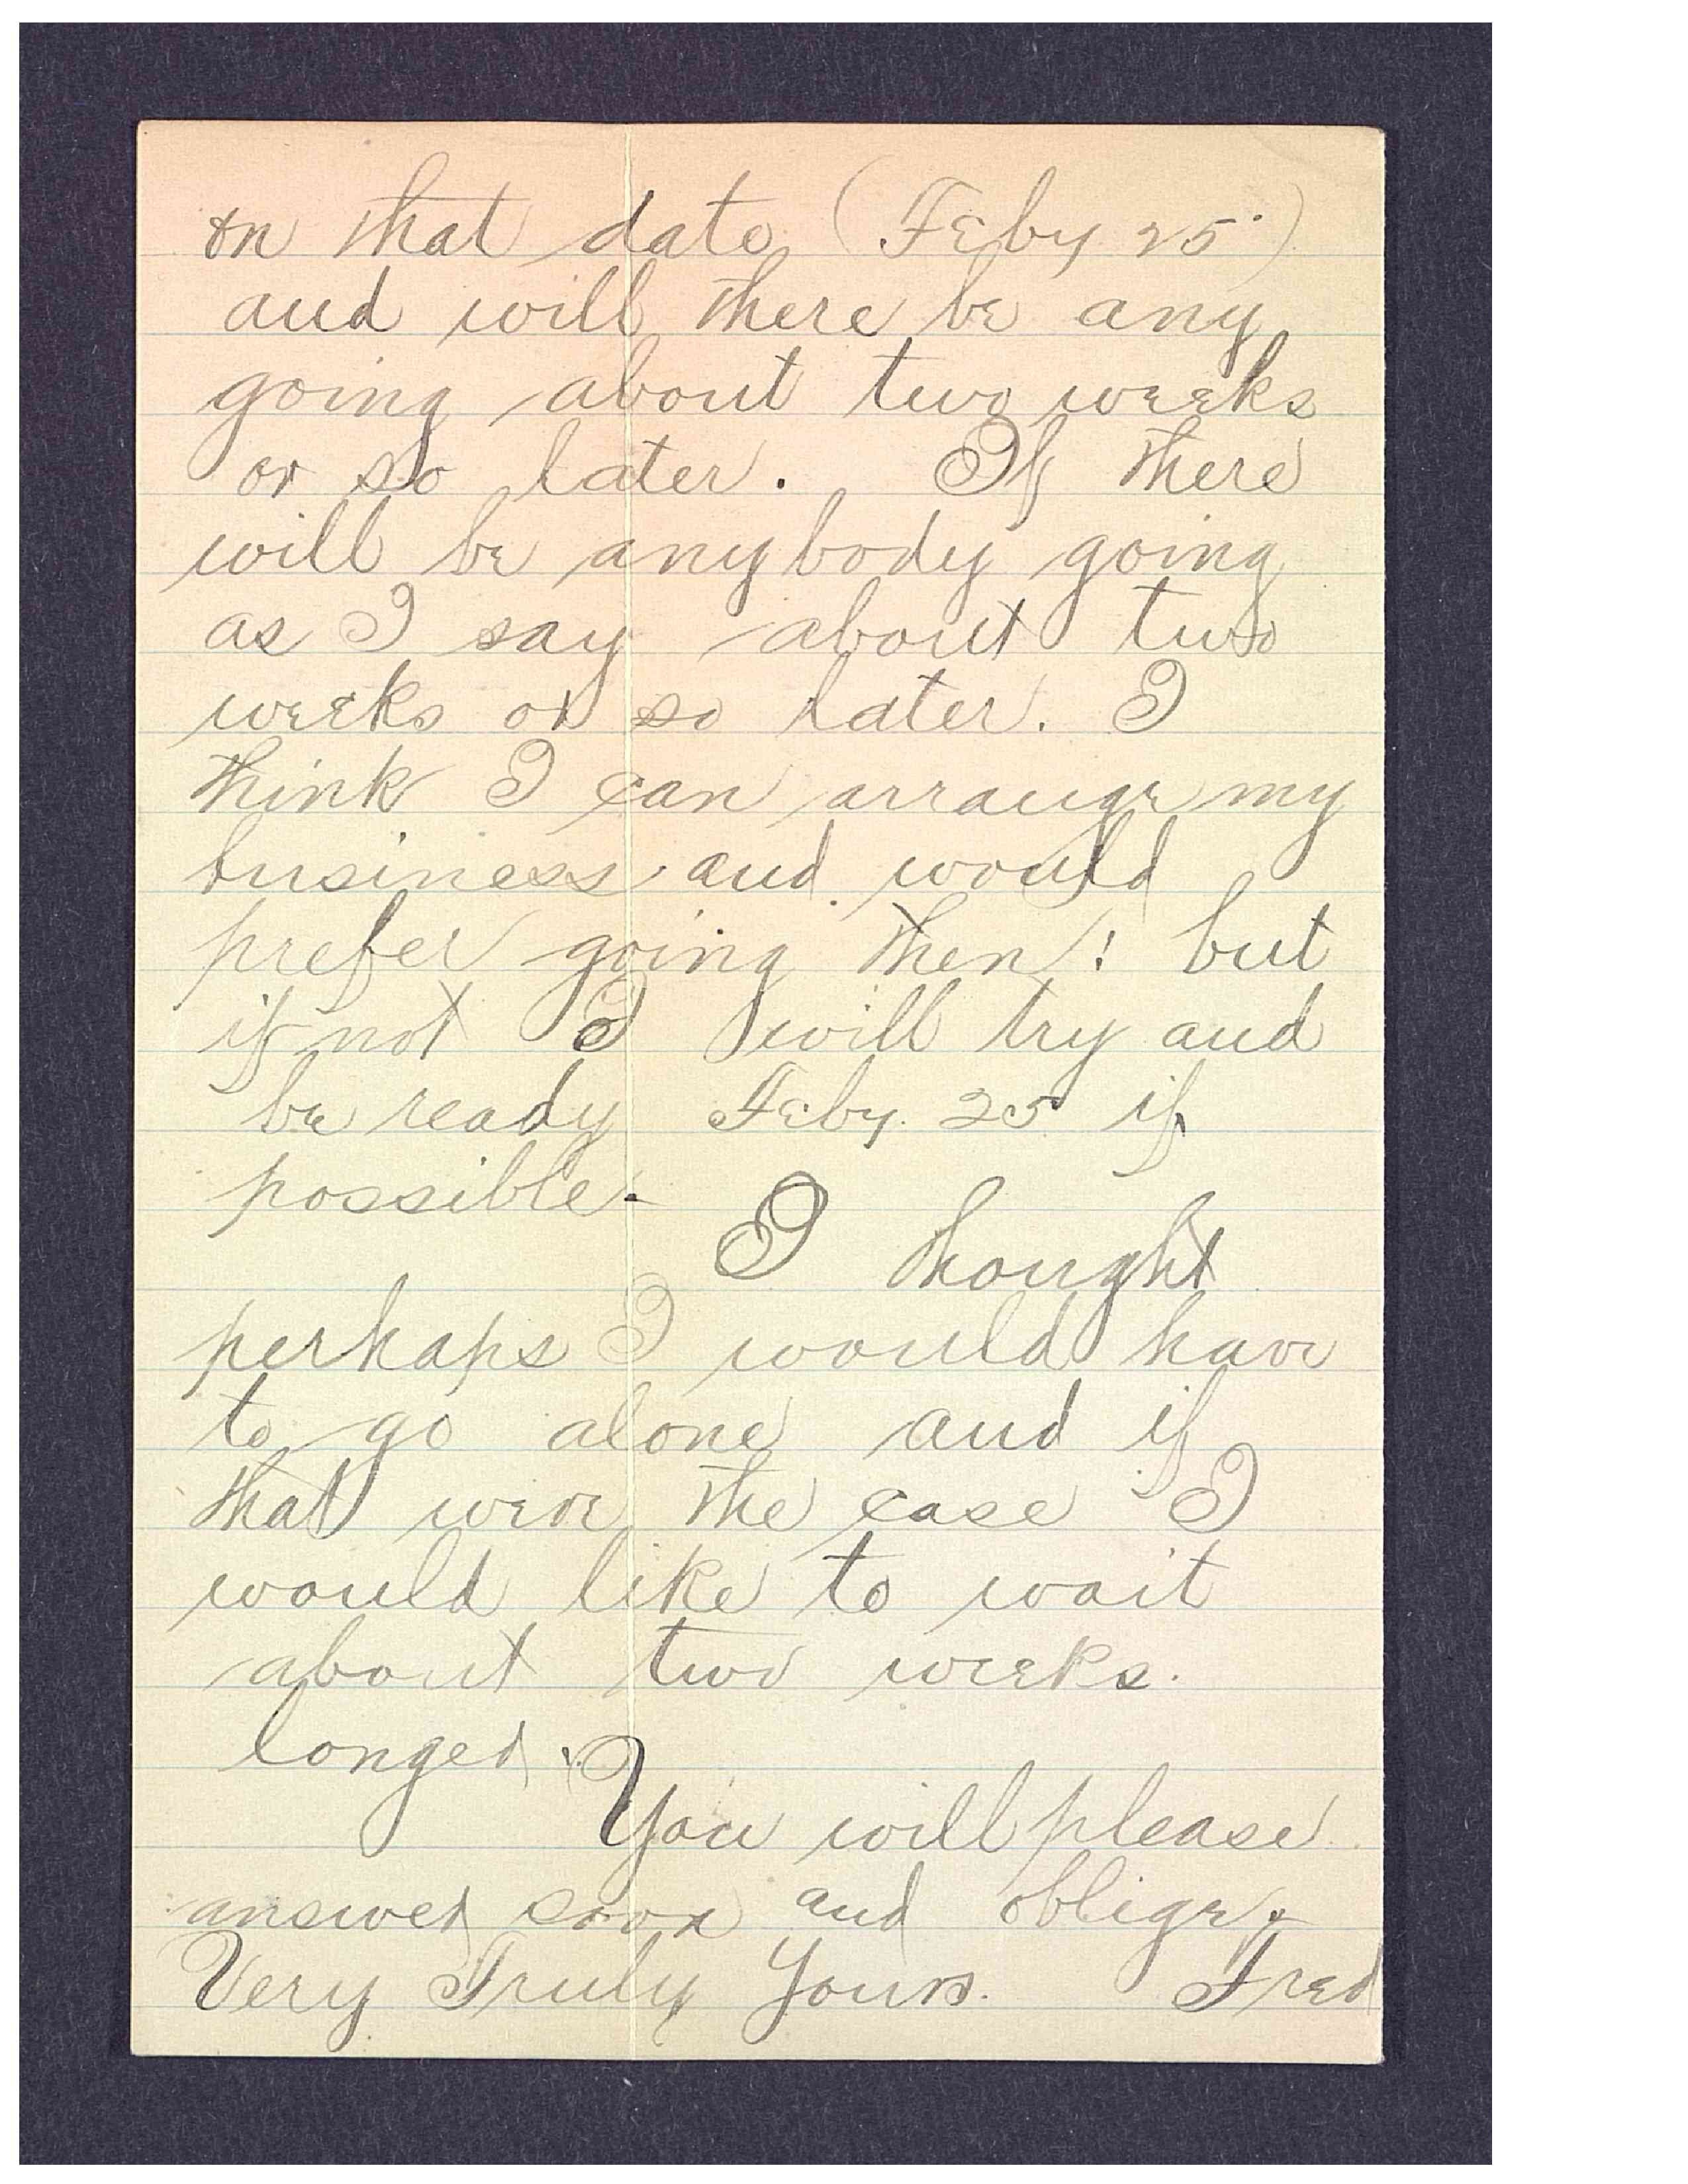 on that date (Feby 25)
and will there be any
going about two weeks
or so later. If there
will be anybody going
as I say about two
weeks or so later. I
think I can arrange my
business and would
prefer going then! but
if not I will try and
be ready Feby. 25 if
possible.
I thought
perhaps I would have
to go alone and if
that were the case I
would like to wait
about two weeks.
longer.
You will please
answer soon and oblige.
Very Truly Yours. Fred